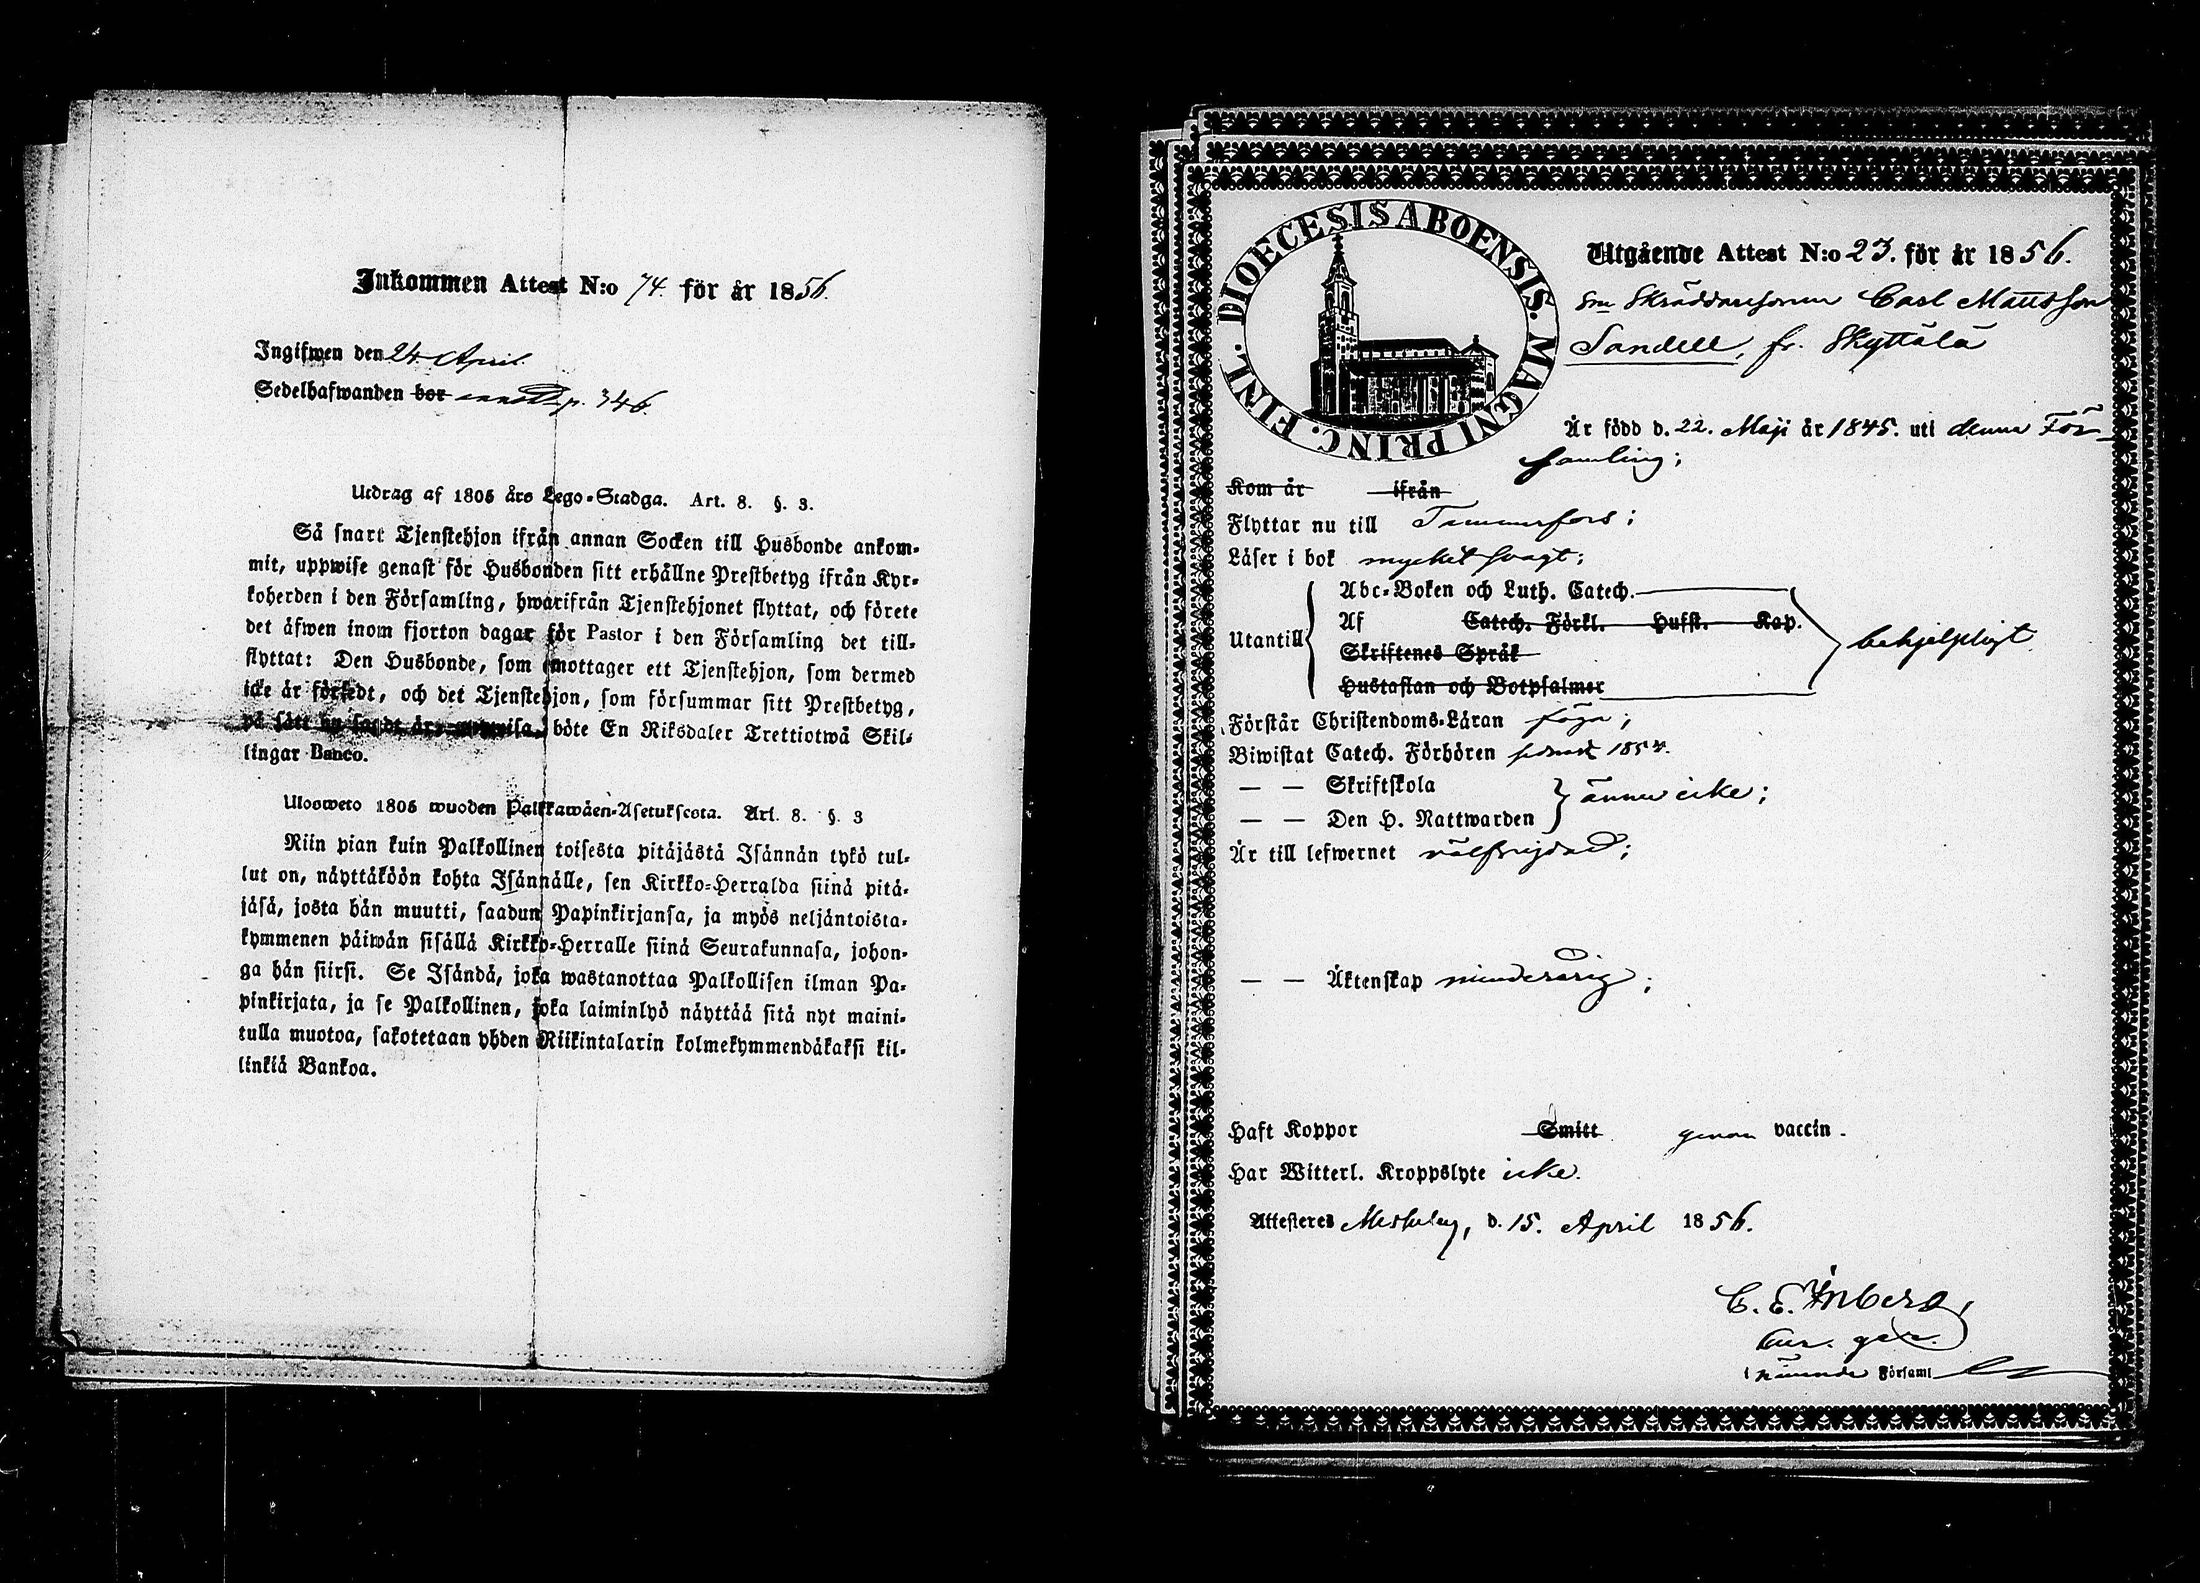 Inkommen Attest N:o 74. för år 1856.
Ingifwen den 24. April.
Sedelhafwanden bor p. 346.
Utdrag af 1805 års Lego-Stadga. Art. 8. §. 3.
Så snart Tjenstehjon ifrån annan Socken till Husbonde ankom-
mit, uppwise genast för Husbonden sitt erhållne Prestbetyg ifrån Kyr-
koherden i den Församling, hwarifrån Tjenstehjonet flyttat, och förete
det äfwen inom fjorton dagar för Pastor i den Församling det till-
flyttat: Den Husbonde, som emottager ett Tjenstehjon, som dermed
icke är försedt, och det Tjenstehjon, som försummar sitt Prestbetyg,
på sätt nu sagdt är, uppwisa, böte En Riksdaler Trettiotwå Skil-
lingar Banco.
Ulosweto 1805 wuoden Palkkawäen-Asetuksesta. Art. 8. §. 3
Niin pian kuin Palkollinen toisesta pitäjästä Isännän tykö tul-
lut on, näyttäköön kohta Isännälle, sen Kirkko-Herralda siinä pitä-
jäsä, josta hän muutti, saadun Papinkirjansa, ja myös neljäntoista-
kymmenen päiwän sisällä Kirkko-Herralle siinä Seurakunnasa, johon-
ga hän siirsi. Se Isändä, joka wastanottaa Palkollisen ilman Pa-
pinkirjata, ja se Palkollinen, joka laiminlyö näyttää sitä nyt maini-
tulla muotoa, sakotetaan yhden Riikintalarin kolmekymmendäkaksi kil-
linkiä Bankoa.
DIOECESIS ABOENSIS. MAGNI PRINC. FINL.
Utgående Attest N:o 23. för år 1856.
Skräddaresonen Carl Mattsson
Sandell, fr. Skyttälä
Är född d. 22. Maji år 1845. uti denna För-
samling;
Kom år ifrån
Flyttar nu till Tammerfors;
Läser i bok mycket svagt;
Abc-Boken och Luth. Catech.
Utantill Af Catech. Förkl. Husst. Kap. behjelpligt
Skriftenes Språk
Hustaflan och Botpsalmer
Förstår Christendoms-Läran föga;
Biwistat Catech. Förhören 1854.
— — Skriftskola
ännu icke;
— — Den H. Nattwarden
Är till lefwernet välfrejdad;
— — Äktenskap minderårig;
Haft Koppor Smitt genom vaccin.
Har Witterl. Kroppslyte icke.
Attesteres Messuby, d. 15. April 1856.
C. E.
i nämnde Församl